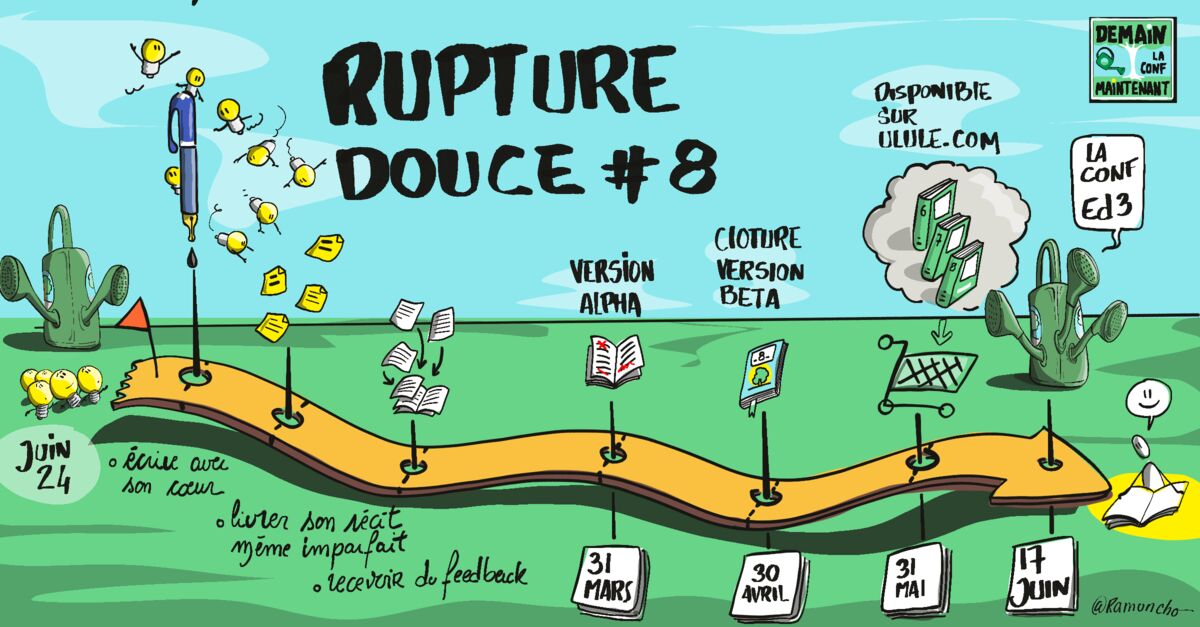 RUPTURE
DOUCE #8
DEMAIN
LA
CONF
MAINTENANT
DISPONIBLE
SUR
ULULE.COM
LA
CONF
Ed3
6
7
8
VERSION
ALPHA
CLOTURE
VERSION
BETA
-8-
JUIN
24
° écrire avec
son cœur
° livrer son récit
même imparfait
° recevoir du feedback
31
MARS
30
AVRIL
31
MAI
17
JUIN
@Ramuncho